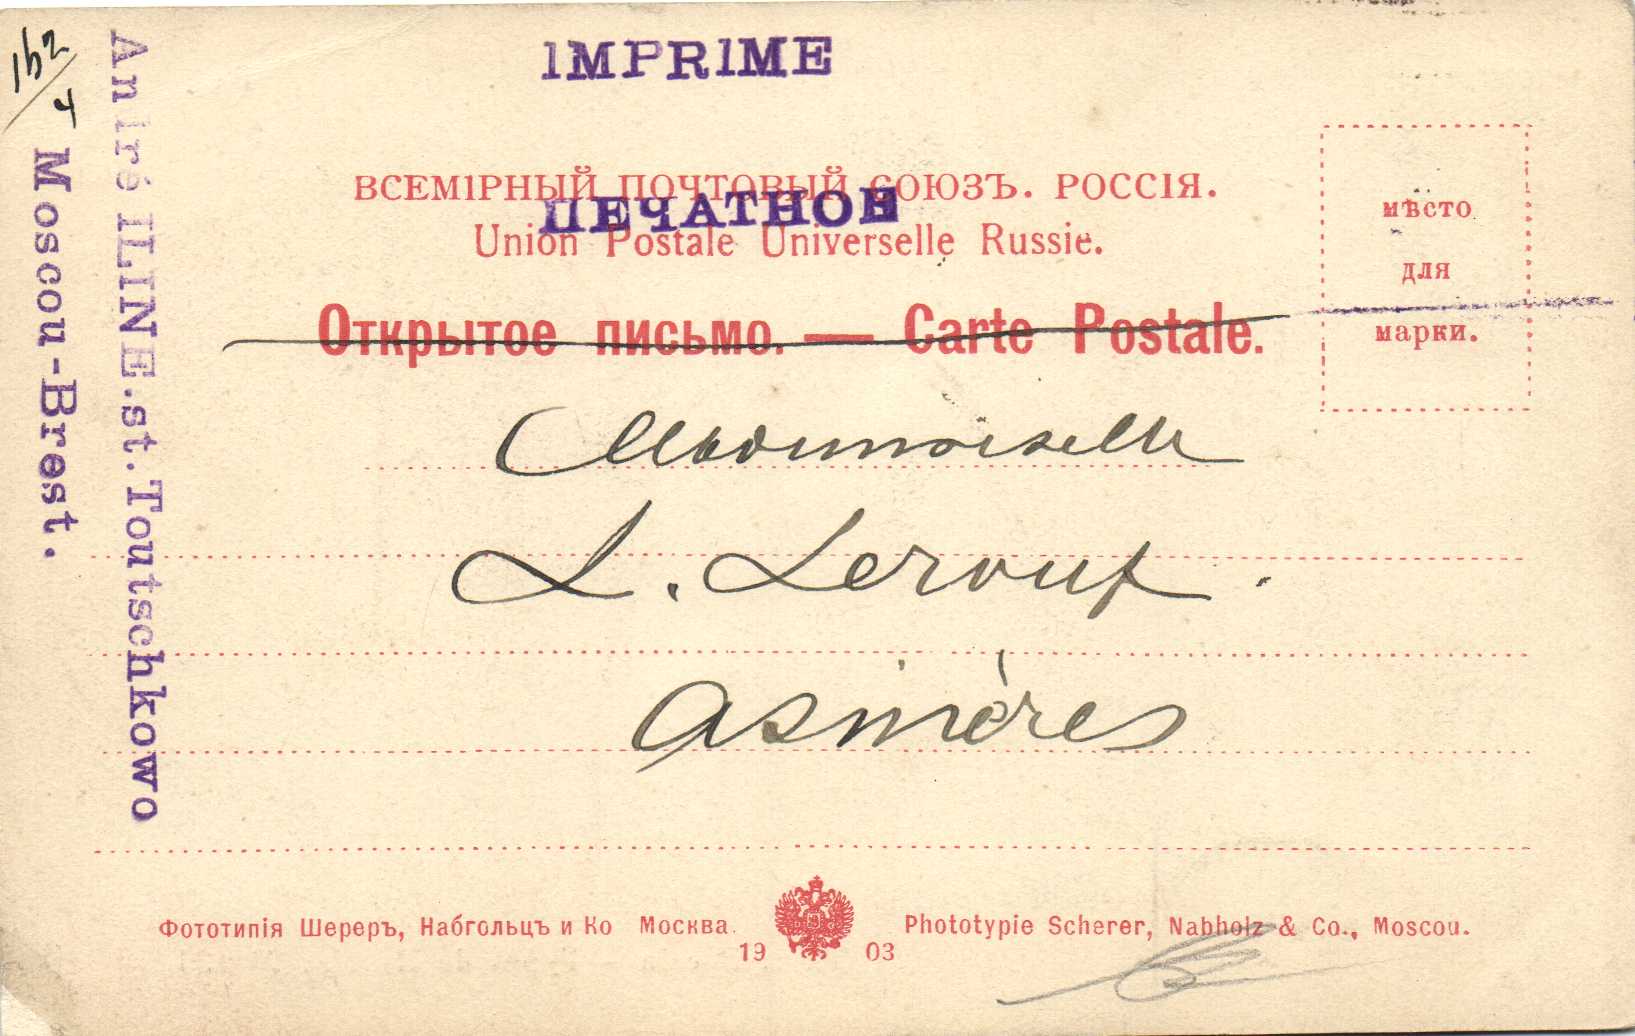 IMPRIME
ВСЕМІРНЫЙ ПОЧТОВЫЙ СОЮЗЪ. РОССІЯ.
ПЕЧАТНОЕ
Union Postale Universelle Russie.
Открытое письмо. — Carte Postale.
мѣсто
для
марки.
Mademoiselle
L. Leroux.
Asnières
André ILINE.st.Toutschkowo
Moscou-Brest.
Фототипія Шереръ, Набгольцъ и Ко Москва.
1903
Phototypie Scherer, Nabholz & Co., Moscou.